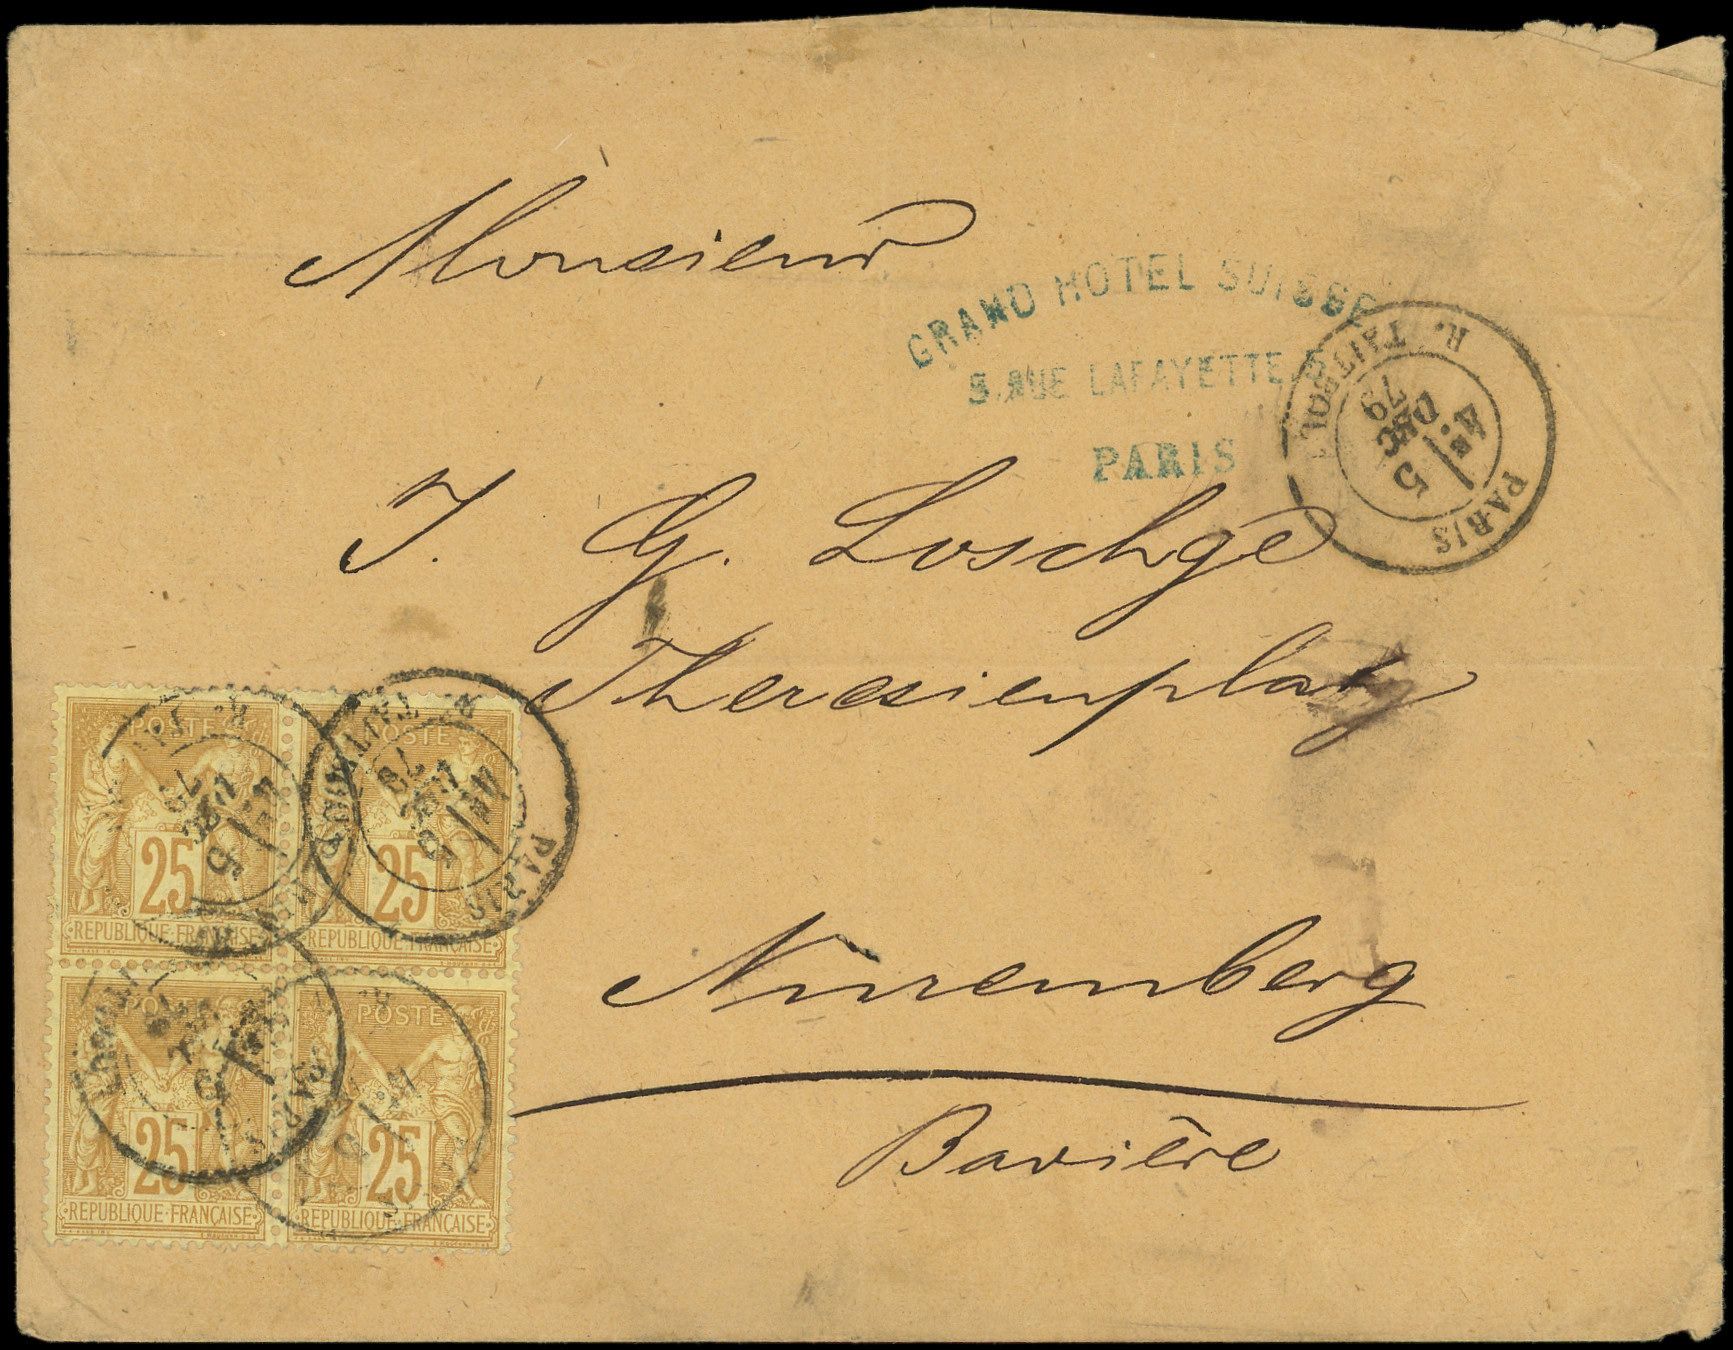 Monsieur
GRAND HOTEL SUISSE
5, RUE LAFAYETTE, 5
PARIS
R. TAITBOUT
PARIS
4E
5
DEC
79
J. G. Loschge
Theresienplatz
Nuremberg
Bavière
POSTE
25
REPUBLIQUE FRANÇAISE
POSTE
25
REPUBLIQUE FRANÇAISE
POSTE
25
REPUBLIQUE FRANÇAISE
POSTE
25
REPUBLIQUE FRANÇAISE
PARIS
5
79
PARIS